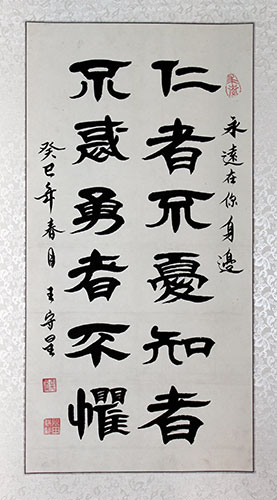 永遠在你身邊
仁者不憂知者
不惑勇者不懼
癸巳年春月 王守星